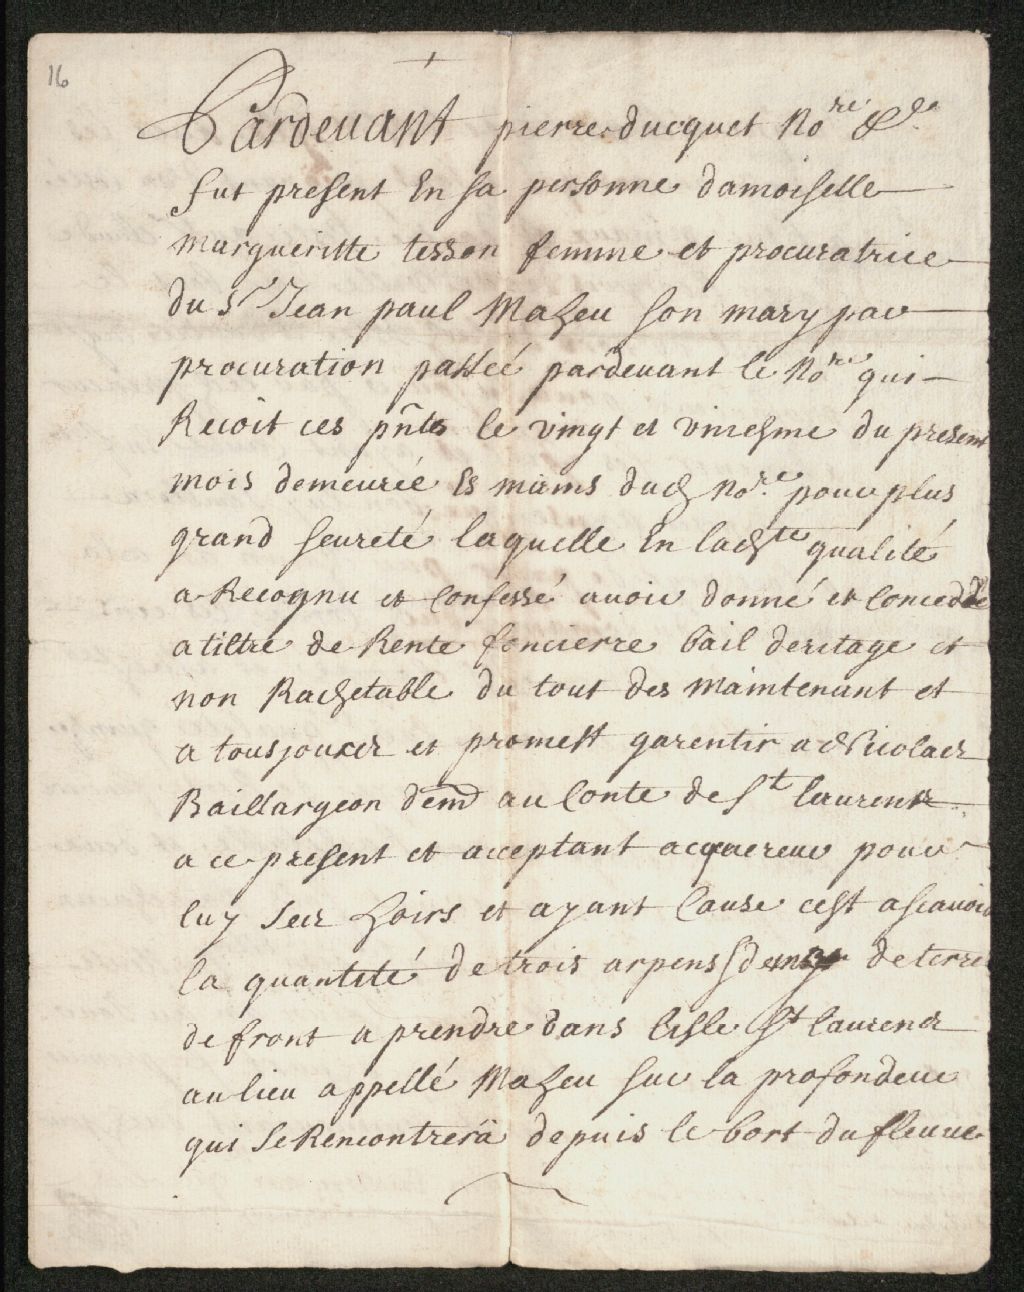 16
Pardeuant pierre ducquet No.re &.a
fut present En sa personne damoiselle
margueritte tesson femme et procuratrice
du Sr Jean paul Maheu son mary par
procuration passeé pardeuant le No.re qui
Recoit ces pn̄tes le vingt et vniesme du present
mois demeurée Es mains dud No.re pour plus
grand seureté laquelle En lad.te qualité
a Recognu et confessé auoir donné et conceddé
a tiltre de Rente foncierre bail deritage et
non Rachetable du tout des maintenant et
a tousjours et promest garentir a Nicolas
Baillargeon dem̄ au Conte de St laurens
a ce present et acceptant acquereur pour
luy ses hoirs et ayant Cause cest ascauoir
la quantité de trois arpens de terre
de front a prendre dans lisle St laurens
au lieu appellé Maheu sur la profondeur
qui se Rencontrera depuis le bort du fleuue